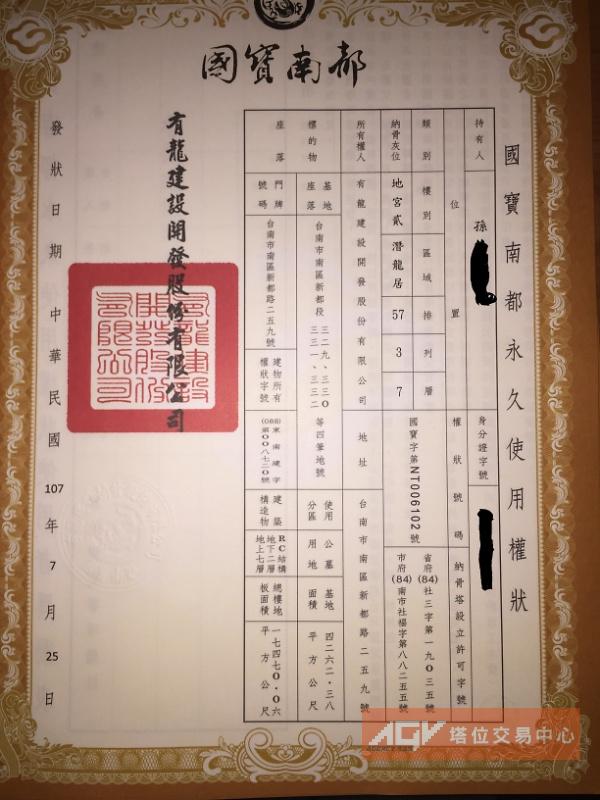 國寶南都
國寶南都永久使用權狀
持有人
孫
身分證字號
位置
類別
樓別
區域
排
列
層
權狀號碼
納骨塔設立許可字號
納骨灰位
地宮貳
潛龍居
57
3
7
國寶字第NT006102號
省府(84)社三字第一九0三五號
市府(84)南市社福字第八八二五五號
所有權人
有龍建設開發股份有限公司
地址
台南市南區新都路二五九號
標的物座落
基地座落
台南市南區新都段三二九、三三0
三三一、三三二
等四筆地號
使用分區
公墓用地
基地面積
四二六二.三八平方公尺
門牌號碼
台南市南區新都路二五九號
建物所有權狀字號
(086)東南建字
第00八七二0號
建築構造物
RC結構
地下二層
地上七層
總樓地板面積
一七四七0.0六平方公尺
有龍建設開發股份有限公司
發狀日期 中華民國 107 年 7 月 25 日
AGV 塔位交易中心